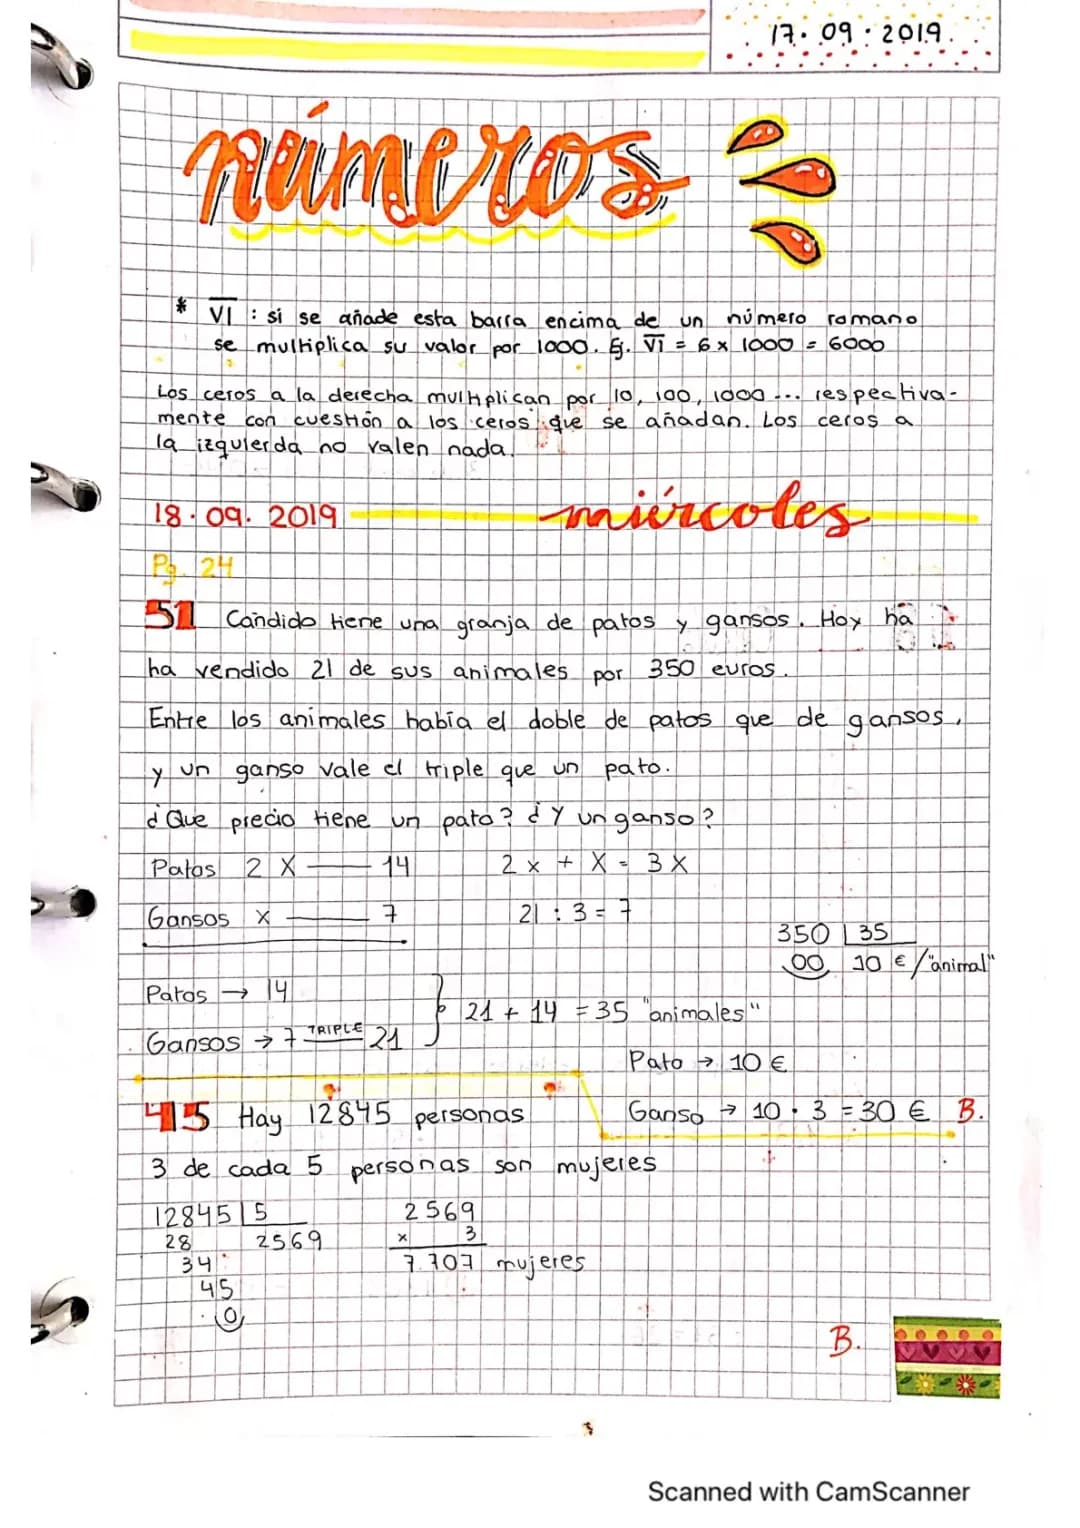 17. 09. 2019.
números
* V̅I̅ : si se añade esta barra encima de un número romano
se multiplica su valor por 1000. Ej. V̅I̅ = 6 x 1000 = 6000
Los ceros a la derecha multiplican por 10, 100, 1000... respectiva-
mente con cuestión a los ceros que se añadan. Los ceros a
la izquierda no valen nada.
18. 09. 2019 miércoles
Pg. 24
51 Cándido tiene una granja de patos y gansos. Hoy ha
ha vendido 21 de sus animales por 350 euros.
Entre los animales había el doble de patos que de gansos,
y un ganso vale el triple que un pato.
¿Que precio tiene un pato? ¿Y un ganso?
Patos 2 X — 14 2 x + X = 3 X
Gansos x — 7 21 : 3 = 7
350 | 35
00 10 € / "animal"
Patos → 14
21 + 14 = 35 "animales"
Gansos → 7 TRIPLE 21
Pato → 10 €
Ganso → 10 · 3 = 30 € B.
45 Hay 12845 personas
3 de cada 5 personas son mujeres
12845 | 5 2569
28 2569 x 3
34 7.707 mujeres
45
0
B.
Scanned with CamScanner